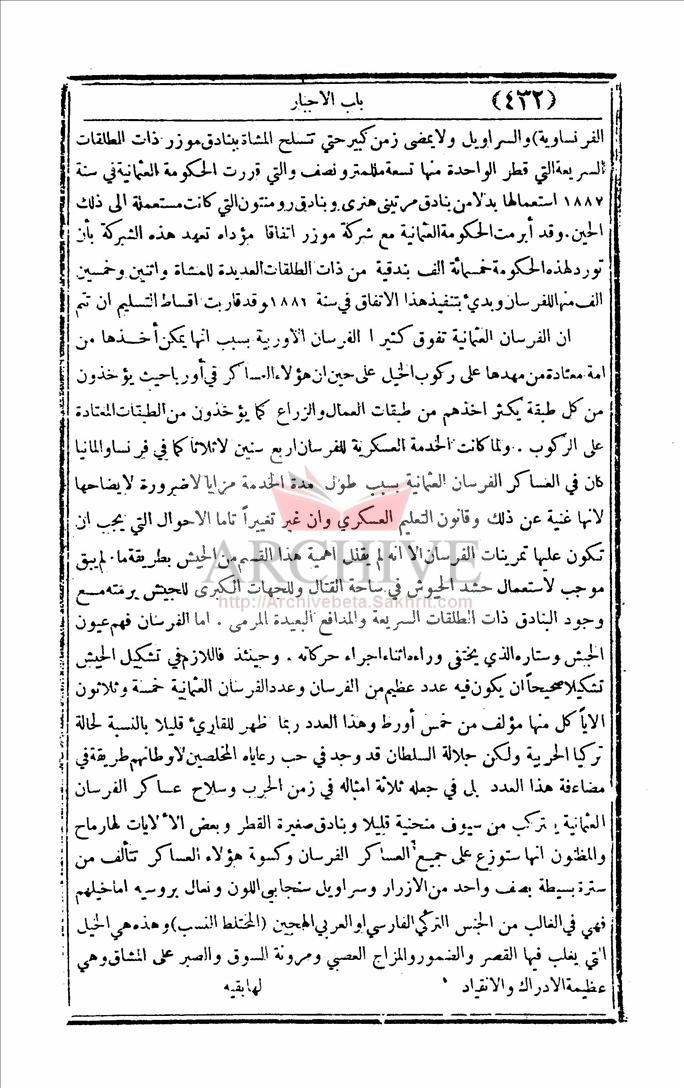 (٤٣٢) باب الاخبار
الفرنساوية) والسراويل ولا يمضى زمن كبير حتي تتسلح المشاة ببنادق موزر ذات الطلقات
السريعة التي قطر الواحدة منها تسعة مللمتر ونصف والتي قررت الحكومة العثمانية في سنة
١٨٨٧ استعمالها بدلا من بنادق مرتيني هنري وبنادق رومنتون التي كانت مستعملة الى ذلك
الحين. وقد أبرمت الحكومة العثمانية مع شركة موزر اتفاقا مؤداه تعهد هذه الشركة بأن
تورد لهذه الحكومة خمسمائة الف بندقية من ذات الطلقات العديدة للمشاة واثنين وخمسين
الف منها للفرسان وبدئ بتنفيذ هذا الاتفاق في سنة ١٨٨٦ وقد قاربت اقساط التسليم ان تتم
ان الفرسان العثمانية تفوق كثيرا الفرسان الاوربية بسبب انها يمكن أخذها من
امة معتادة من مهدها على ركوب الخيل على حين ان هؤلاء العساكر في أوربا حيث يؤخذون
من كل طبقة يكثر اخذهم من طبقات العمال والزراع كما يؤخذون من الطبقات المعتادة
على الركوب . ولما كانت الخدمة العسكرية للفرسان اربع سنين لا ثلاثا كما في فرنسا والمانيا
كان في العساكر الفرسان العثمانية بسبب طول مدة الخدمة مزايا لا ضرورة لايضاحها
لانها غنية عن ذلك وقانون التعليم العسكري وان غير تغييراً تاما الاحوال التي يجب ان
تكون عليها تمرينات الفرسان الا انه لم يقلل اهمية هذا القسم من الجيش بطريقة ما. لم يبق
موجب لاستعمال حشد الجيوش في ساحة القتال وللجهات الكبرى للجيش برمته مع
وجود البنادق ذات الطلقات السريعة والمدافع البعيدة المرمى . اما الفرسان فهم عيون
الجيش وستاره الذي يختفى وراءه اثناء اجراء حركاته . وحينئذ فاللازم في تشكيل الجيش
تشكيلا صحيحا ان يكون فيه عدد عظيم من الفرسان وعدد الفرسان العثمانية خمسة وثلاثون
الايا كل منها مؤلف من خمس أورط وهذا العدد ربما ظهر للقارئ قليلا بالنسبة لحالة
تركيا الحربية ولكن جلالة السلطان قد وجد في حب رعاياه المخلصين لاوطانهم طريقة في
مضاعفة هذا العدد بل في جعله ثلاثة امثاله في زمن الحرب وسلاح عساكر الفرسان
العثمانية يتركب من سيوف منحنية قليلا وبنادق صغيرة القطر وبعض الألايات لها رماح
والمظنون انها ستوزع على جميع العساكر الفرسان وكسوة هؤلاء العساكر تتألف من
سترة بسيطة بصف واحد من الازرار وسراويل سنجابي اللون ونعال بروسيه اما خيلهم
فهي في الغالب من الجنس التركي الفارسي او العربي الهجين (المختلط النسب) وهذه هي الخيل
التي يغلب فيها القصر والضمور والمزاج العصبي ومرونة السوق والصبر على المشاق وهي
عظيمة الادراك والانقياد لها بقيه
ARCHIVE
http://Archivebeta.Sakhrit.com